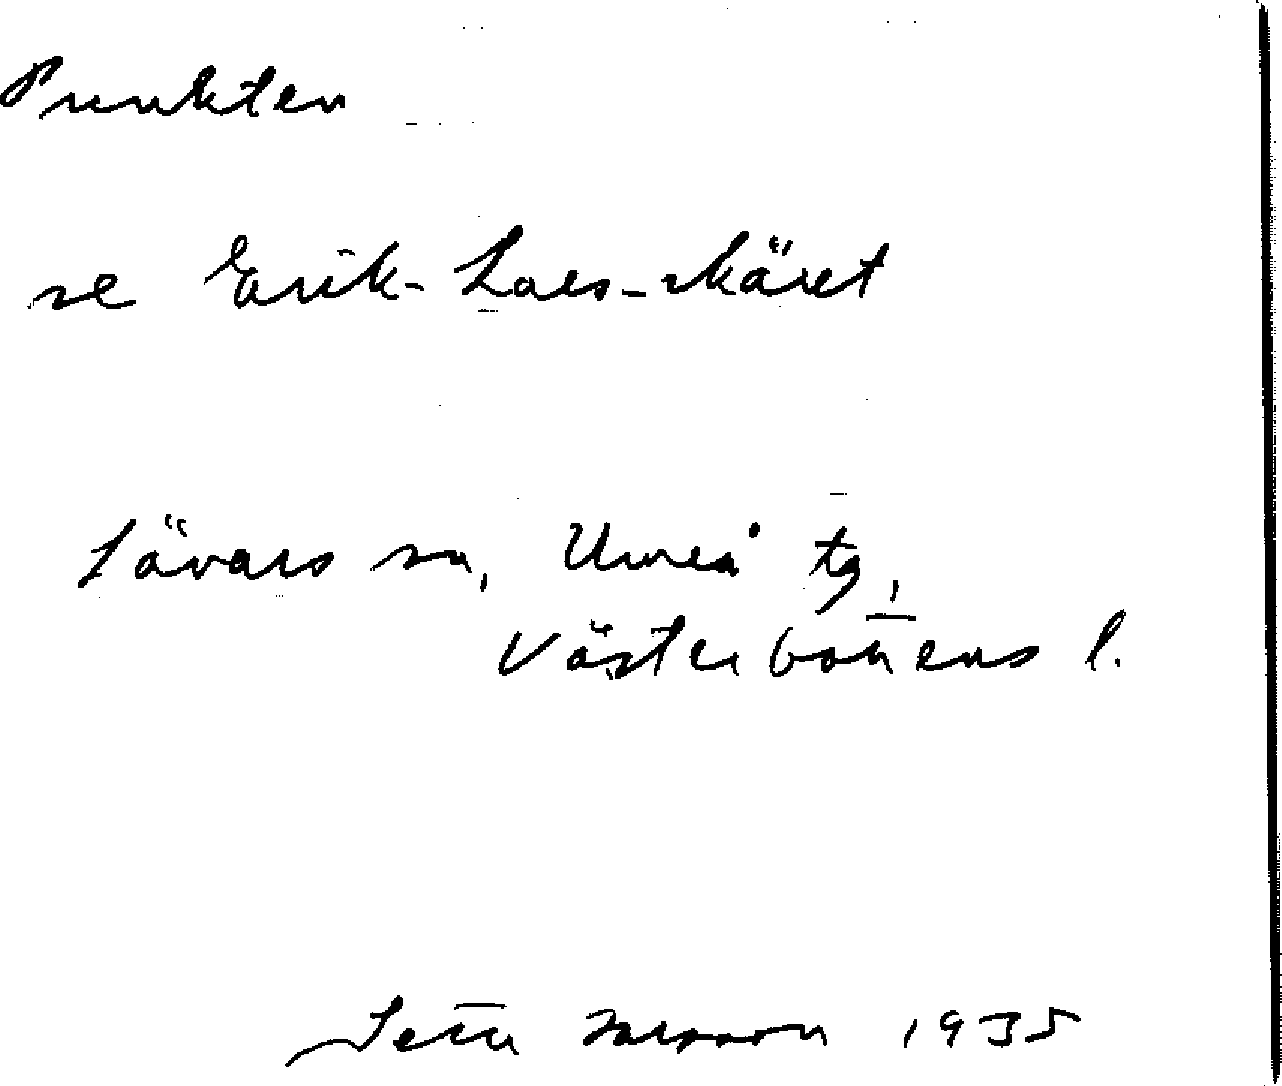 Punkten
se Erik-Lars-skäret
Sävars sn, Umeå tg,
Västerbottens l.
1935